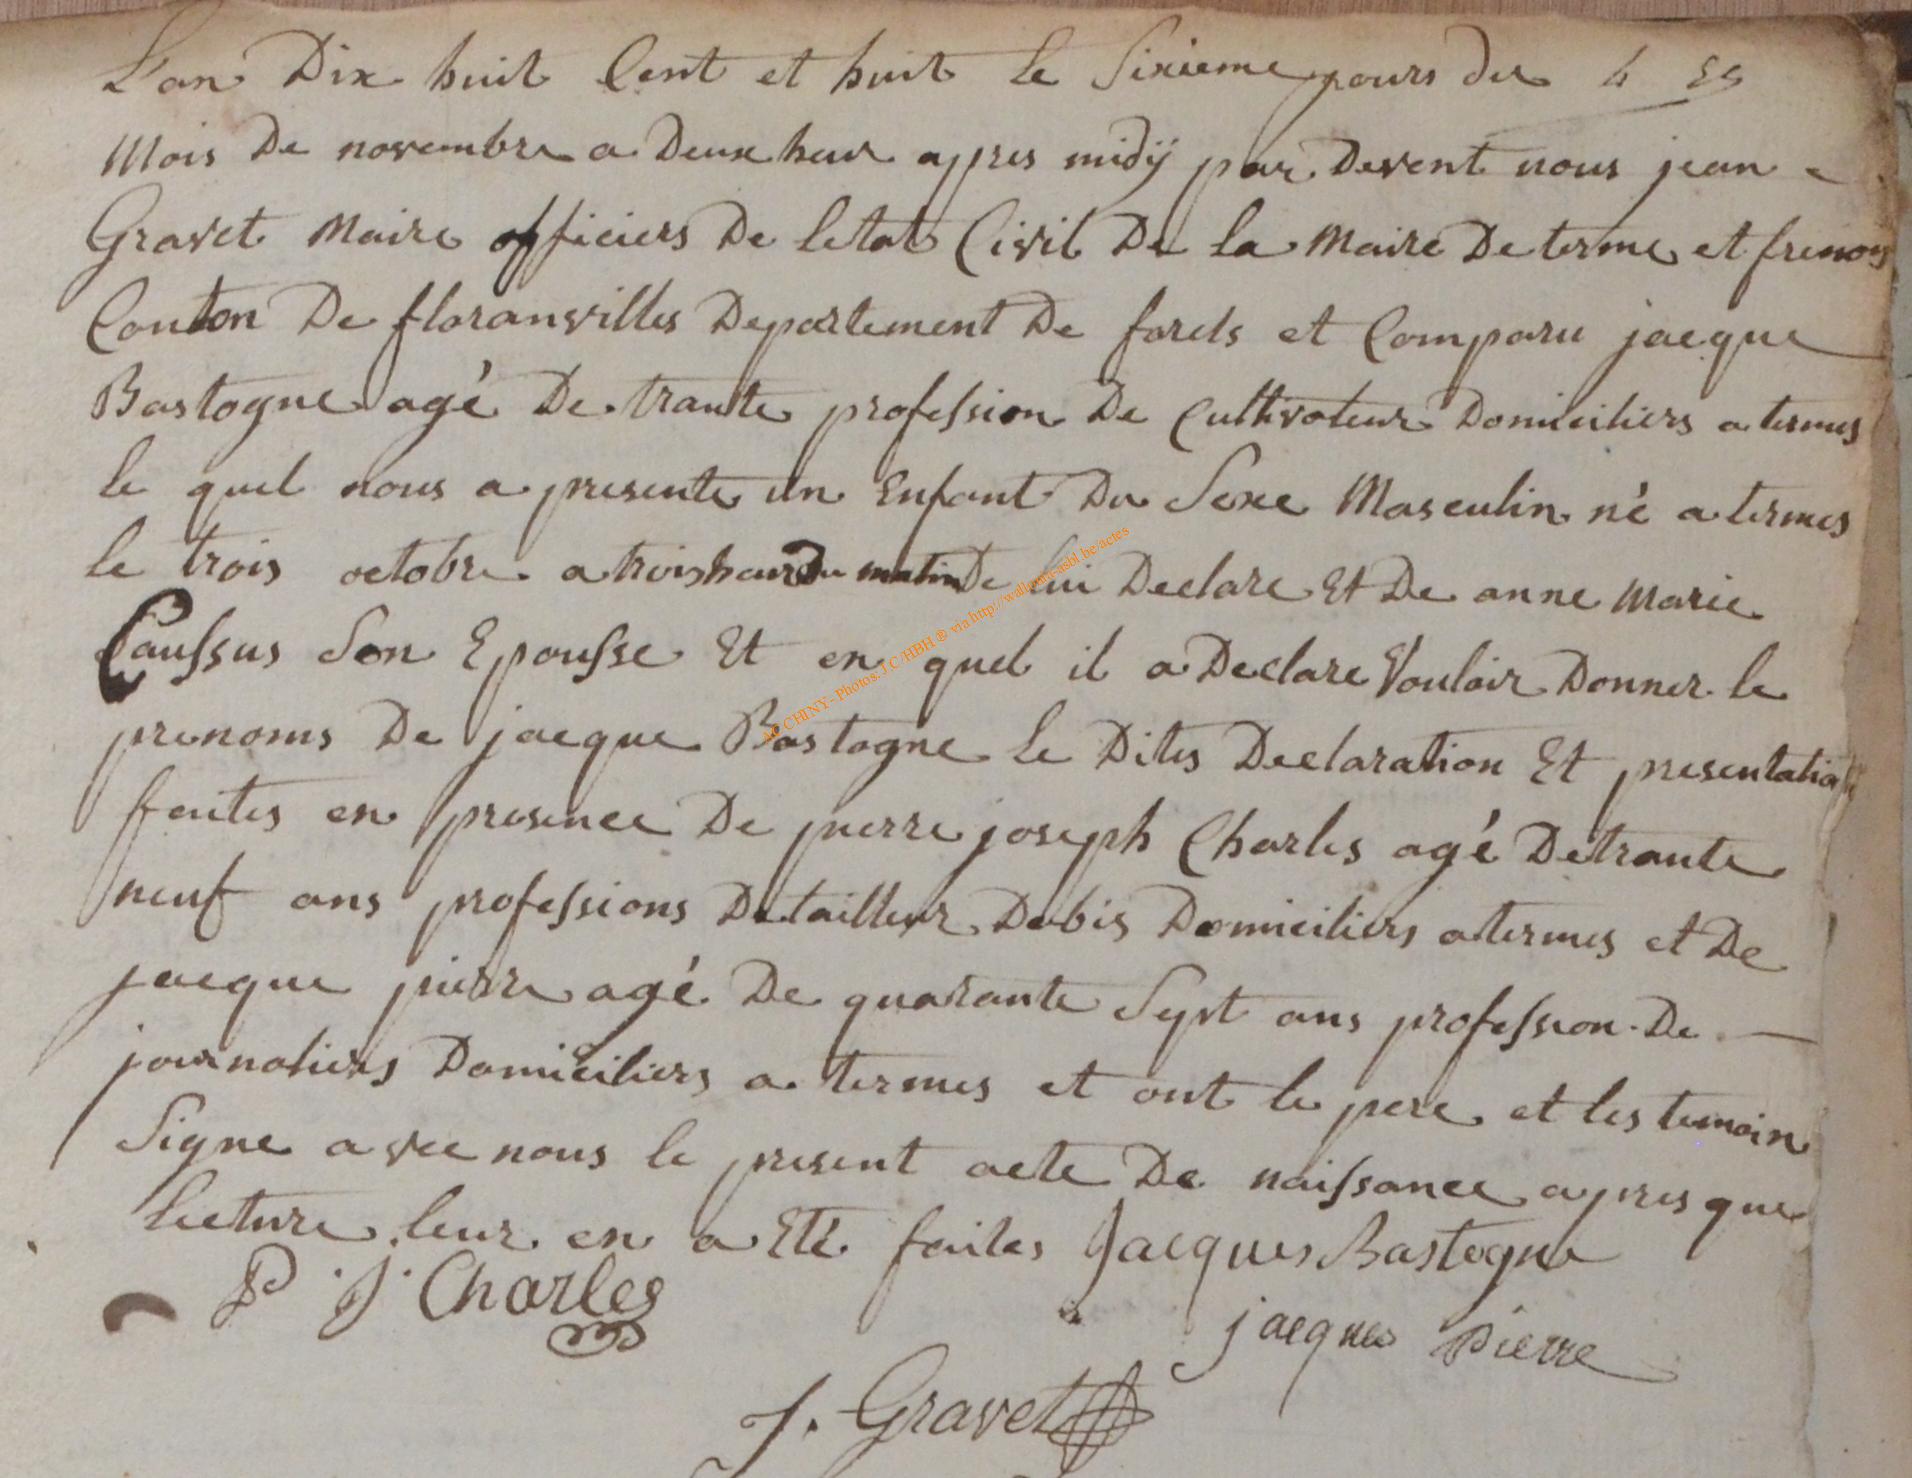 L'an Dix huit Cent et huit le Sixieme jours du
Mois De novembre a Deux heur appres midÿ par Devent nous jean
Gravet Maire officiers De letat Civil De la Maire De terme et frenois
Canton De floranvilles Departement De forets et Comparu jacque
Bastogne agé De trante profession De Cultivateur Domiciliers a termes
le quel nous a presente un Enfant Du Sexe Masculin né a termes
le trois octobre a trois heur Du matin De lui Declare Et De anne Marie
Caussus Son Epousse Et en quel il a Declare Vouloir Donner le
prenoms De jacque Bastogne le Dites Declaration Et presentation
faites en presence De pierre joseph Charles agé De trante
neuf ans professions De tailleur Dabis Domiciliers a termes et De
jacque pierre agé De quarante Sept ans profession De
journaliers Domiciliers a termes et ont le pere et les temoin
Signe avec nous le present acte De naissance appres que
lecture leur en a Eté faites Jacques Bastogne
P J Charles
jacques Pierre
J. Gravet
AC CHINY - Photos. J.C/HBH ® via http://wallonia-asbl.be/actes